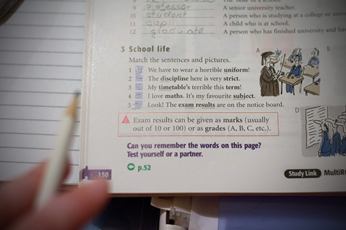 professor A senior university teacher.
10 student A person who is studying at a college or
11 A child who is at school.
12 graduate A person who has finished university and
3 School life
Match the sentences and pictures.
1 We have to wear a horrible uniform!
2 The discipline here is very strict.
3 My timetable's terrible this term!
4 I love maths. It's my favourite subject.
5 Look! The exam results are on the notice board.
A
B
Exam results can be given as marks (usually
out of 10 or 100) or as grades (A, B, C, etc.).
D
Can you remember the words on this page?
Test yourself or a partner.
p.52
150
Study Link MultiR